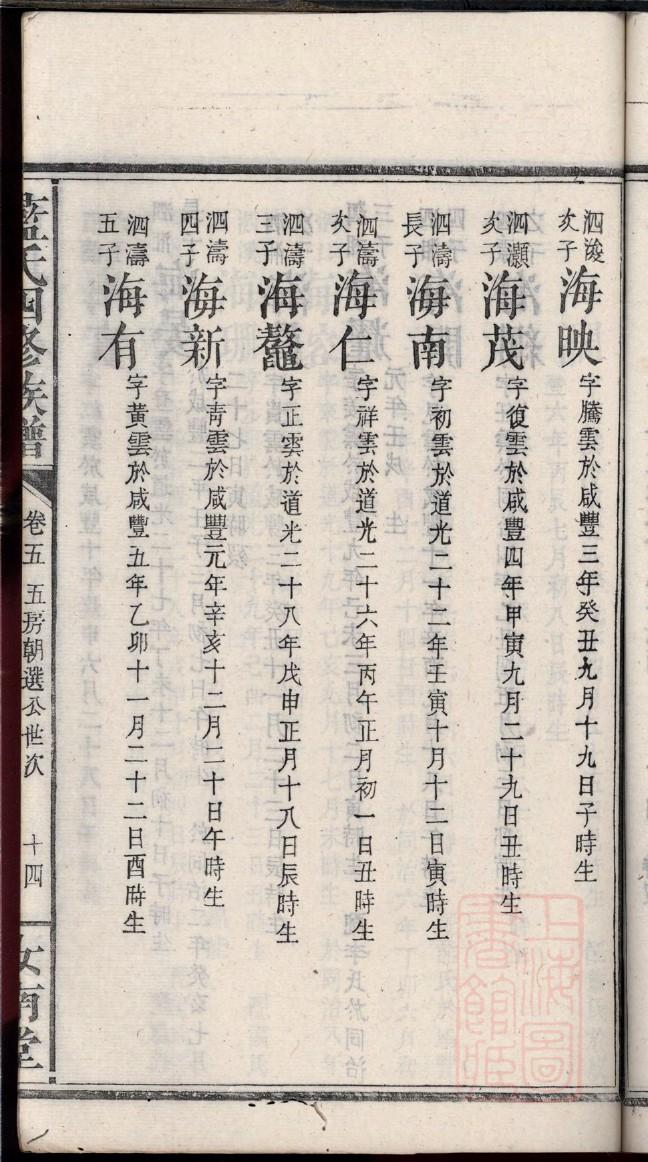 泗浚次子 海映 字騰雲於咸豐三年癸丑九月十九日子時生
泗灝次子 海茂 字復雲於咸豐四年甲寅九月二十九日丑時生
泗濤長子 海南 字初雲於道光二十二年壬寅十月十二日寅時生
泗濤次子 海仁 字祥雲於道光二十六年丙午正月初一日丑時生
泗濤三子 海鼇 字正雲於道光二十八年戊申正月十八日辰時生
泗濤四子 海新 字青雲於咸豐元年辛亥十二月二十日午時生
泗濤五子 海有 字黃雲於咸豐五年乙卯十一月二十二日酉時生
藍氏四修族譜
卷五 五房朝選公世次 十四
汝南堂
上海圖書館